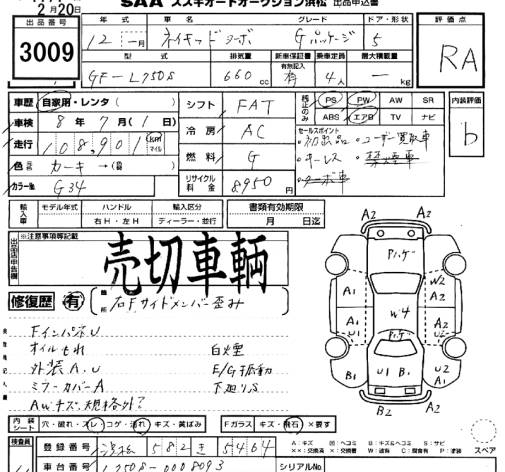 SAA スズキオートオークション浜松 出品申込書
2月20日
出品番号 3009
年式 車名 グレード ドア・形状 評価点
12 一月 ネイキッドターボ Gパッケージ 5 RA
型式 排気量 新車保証書 乗車定員 最大積載量
GF-L750S 660cc 有無記入 有 4人 ー kg
車歴 自家用・レンタ( )
車検 8年7月(1日)
走行 108,901 km マイル
色 カーキ→( 色)
カラー№ G34
シフト FAT
冷房 AC
燃料 G
リサイクル料金 8950円
純正のみ PS PW AW SR
ABS エアB TV ナビ
セールスポイント
・初出品 ・ユーザー買取車
・キーレス ・禁煙車
・ターボ車
内装評価 b
輸入車 モデル年式 ハンドル 輸入区分
右H・左H ディーラー・並行
書類有効期限
月 日迄
出品店申告欄 ※注意事項等記載
売切車輌
修復歴 有 箇所 右Fサイドメンバー歪み
FインパネU
オイルもれ 白煙
外装A.U E/G振動
ミラーカバーA 下廻りS
AWキズ、規格外?
A2 A2
Pハゲー
A1 W2 A2
W4
A1 U2
A1
Pハゲ
U1 B1
U2 A1
A2 A2
スペア
内装シート 穴・破れ・スレ・コゲ・汚れ・キズ・黄ばみ Fガラス キズ・飛石・×要す
A:キズ U:ヘコミ B:キズ&ヘコミ S:サビ
××:交換済 ×:要交換 W:波有 C:腐食有 P:塗装 スペース
検査員
登録番号 浜松 582 き 5464
車台番号 L750S-0008093 シリアル№